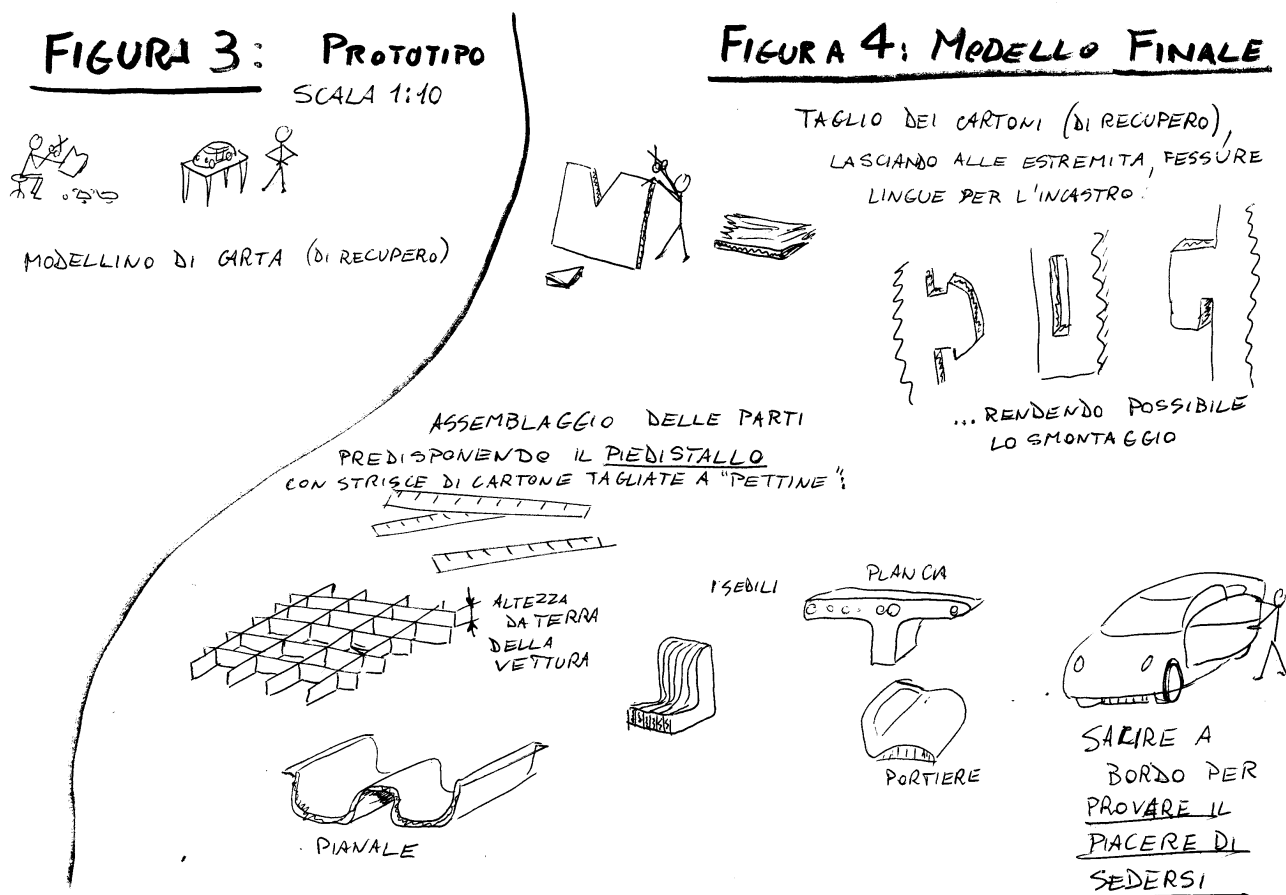 FIGURA 3: PROTOTIPO
SCALA 1:10
MODELLINO DI CARTA (DI RECUPERO)
FIGURA 4: MODELLO FINALE
TAGLIO DEI CARTONI (DI RECUPERO),
LASCIANDO ALLE ESTREMITA, FESSURE
LINGUE PER L'INCASTRO:
...RENDENDO POSSIBILE
LO SMONTAGGIO
ASSEMBLAGGIO DELLE PARTI
PREDISPONENDO IL PIEDISTALLO
CON STRISCE DI CARTONE TAGLIATE A "PETTINE":
ALTEZZA
DA TERRA
DELLA
VETTURA
PIANALE
I SEDILI
PLANCIA
PORTIERE
SALIRE A
BORDO PER
PROVARE IL
PIACERE DI
SEDERSI